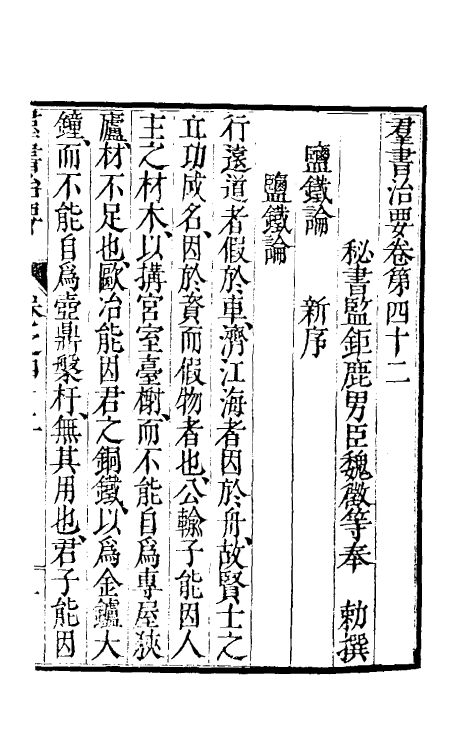 羣書治要卷第四十二
秘書監鉅鹿男臣魏徵等奉　勅撰
鹽鐵論　新序
鹽鐵論
行遠道者假於車、濟江海者因於舟、故賢士之
立功成名、因於資而假物者也、公輸子能因人
主之材木、以搆宮室臺榭、而不能自爲專屋狹
廬、材不足也、歐冶能因君之銅鐵、以爲金鑪大
鐘、而不能自爲壺鼎槃杅、無其用也、君子能因